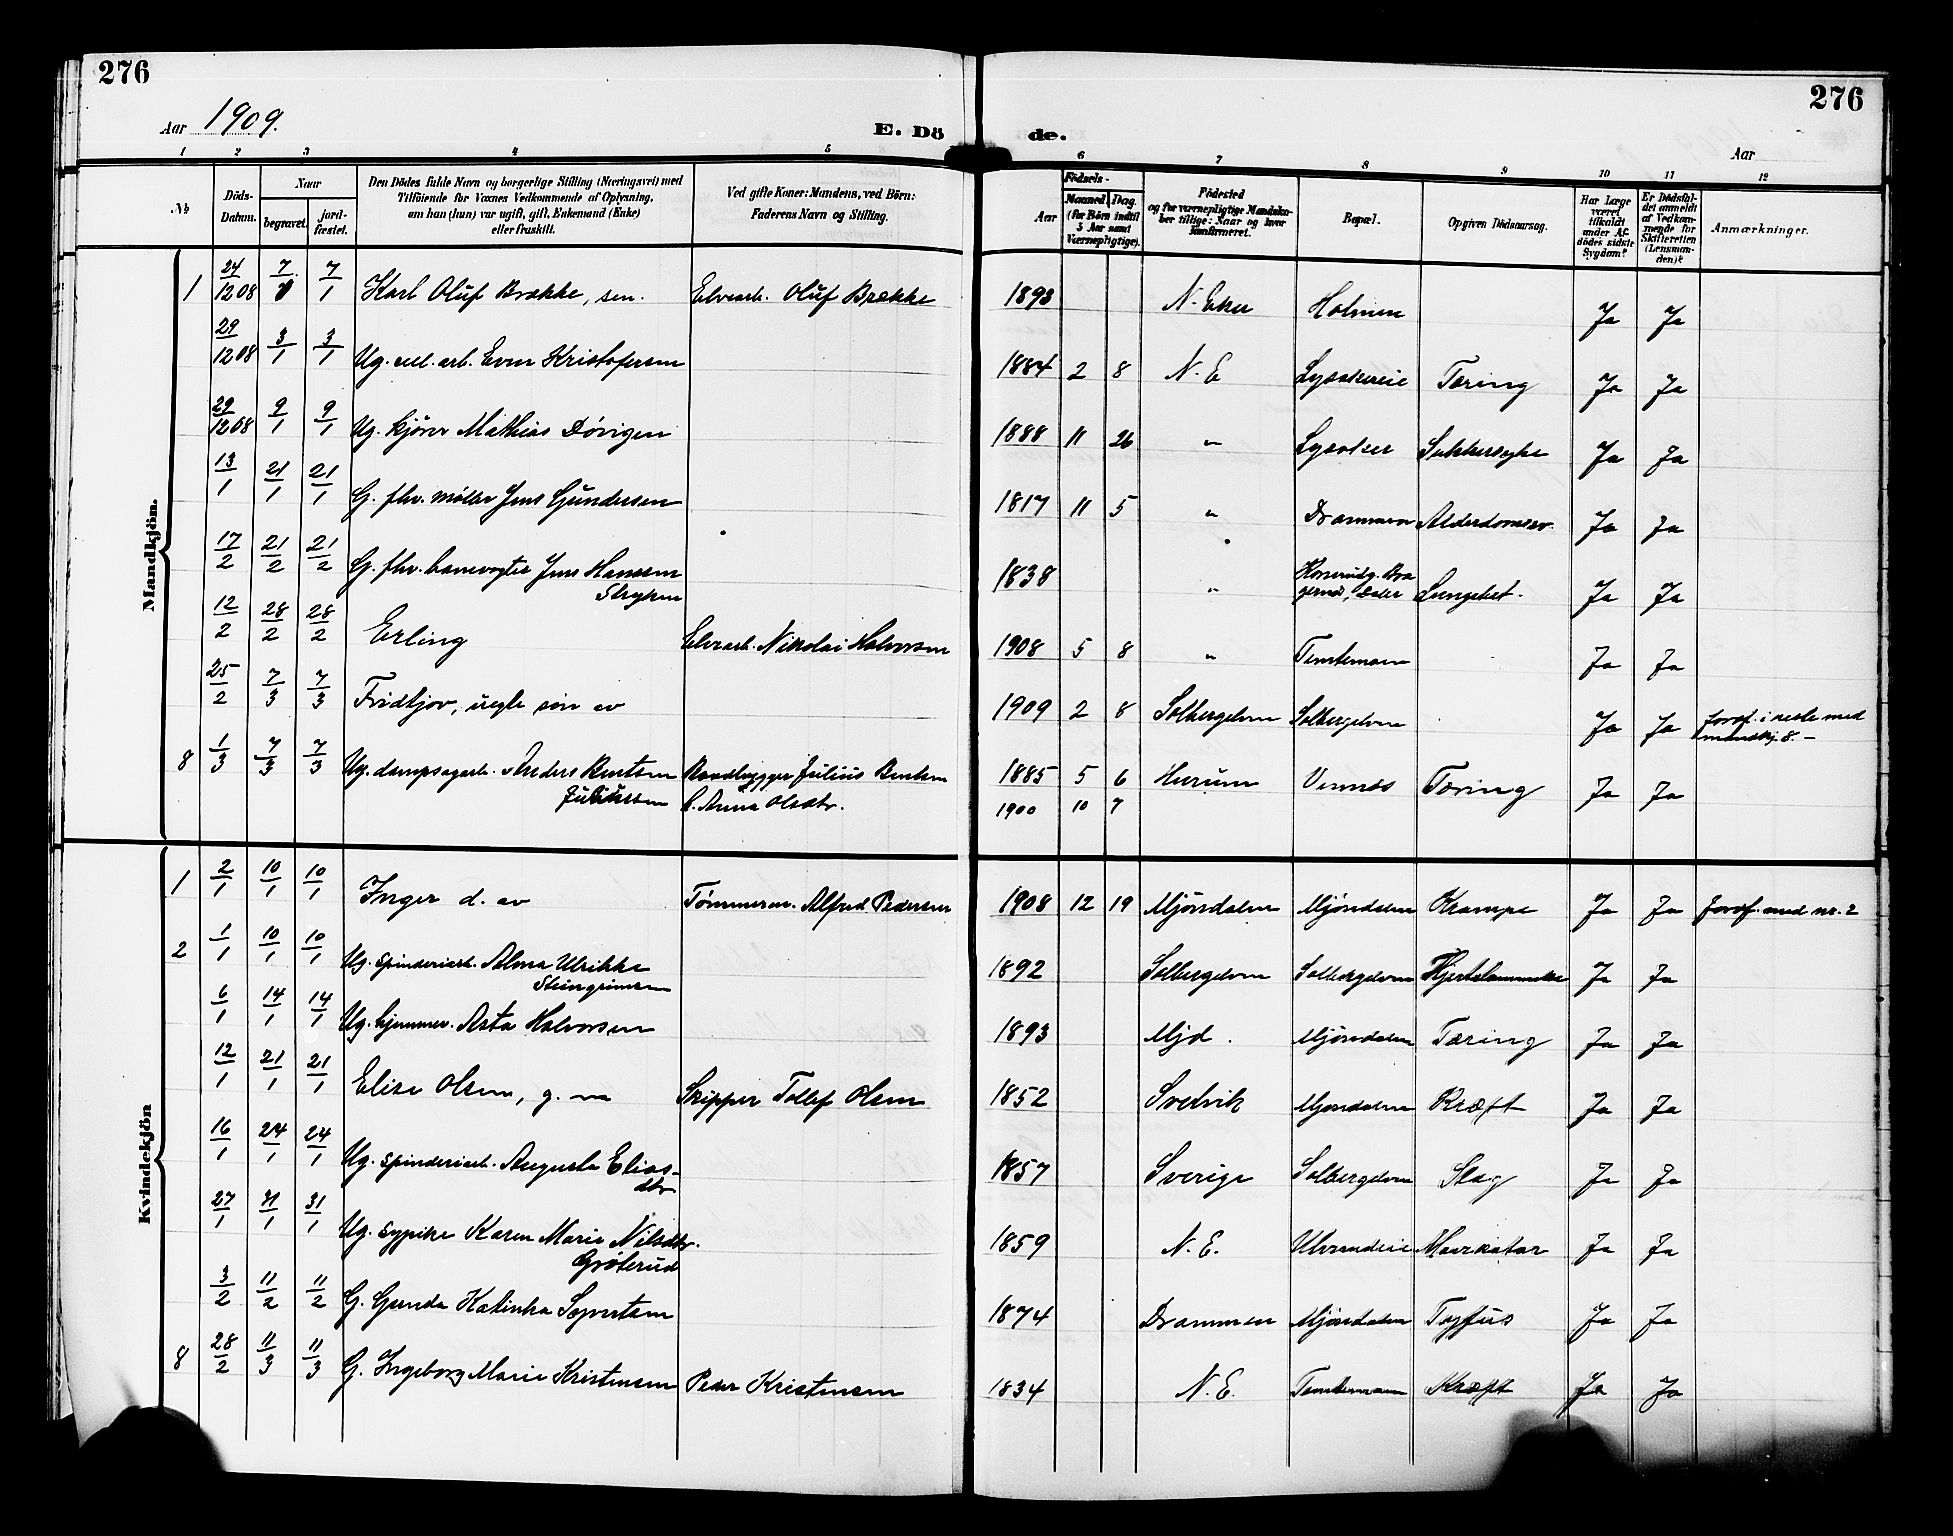 276
276
Aar 1909.
E. Dö de.
Aar
1 2 3 4 5 6 7 8 9 10 11 12
No
Döds-Datum.
Naar
begravet.
jord-fæstet.
Den Dödes fulde Navn og borgerlige Stilling (Næringsvei) med
Tilföiende for Voxnes Vedkommende af Oplysning,
om han (hun) var ugift, gift, Enkemand (Enke)
eller fraskilt.
Ved gifte Koner: Mandens, ved Börn:
Faderens Navn og Stilling.
Födsels-
Aar
Maaned. Dag.
(for Börn indtil
5 Aar samt
Værnepligtige).
Födested
og for værnepligtige Mandskaber tillige: Naar og hvor konfirmeret.
Bopæl.
Opgiven Dödsaarsag.
Har Læge været tilkaldt under Afdödes sidste Sygdom?
Er Dödsfaldet anmeldt af Vedkommende for Skifteretten (Lensmanden)?
Anmærkninger.
Mandkjön.
1 24/12 08 7/1 7/1 Karl Oluf Brække, søn. Elvearb. Oluf Brække 1893 N. Eker Holmen Ja Ja
29/12 08 3/1 3/1 Ug. cell. arb. Even Kristofersen 1884 2 8 N. E Lysakereie Tæring Ja Ja
29/12 08 9/1 9/1 Ug. kjører Mathias Dövigen 1888 11 26 " Lysaker Sukkersyke Ja Ja
13/1 21/1 21/1 G. fhv. møller Jens Gundersen 1817 11 5 " Drammen Alderdomssv. Ja Ja
17/2 21/2 21/2 G. fhv. banevogter Jens Hansen Stryken 1838 " Ja Ja
12/2 28/2 28/2 Erling Elvearb. Nikolai Halvorsen 1908 5 8 " Temtemoen Ja Ja
25/2 7/3 7/3 Fridtjov, uegte søn av 1909 2 8 Solbergelven Solbergelven Ja Ja
8 1/3 7/3 7/3 Ug. dampsagarb. Anders Bentsen Juliussen Baadbygger Julius Bentsen & Anna Olsdtr. 1885 5 6 Hurum Vinnes Tæring Ja Ja
1900 10 7
Kvindekjön
1 2/1 10/1 10/1 Inger d. av Tömmerm. Alfred Pedersen 1908 12 19 Mjöndalen Mjöndalen Krampe Ja Ja Jordf. med nr. 2
2 1/1 10/1 10/1 Ug. spinderiarb. Alma Ulrikke Steingrimsen 1892 Solbergelven Solbergelven Hjertelammelse Ja Ja
6/1 14/1 14/1 Ug. hjemmev. Asta Halvorsen 1893 Mjd. Mjöndalen Tæring Ja Ja
12/1 21/1 21/1 Elise Olsen, g. m Skipper Tollef Olsen 1852 Svelvik Mjöndalen Kræft Ja Ja
16/1 24/1 24/1 Ug. spinderiarb. Augusta Eliasdtr 1857 Sverige Solbergelven Slag Ja Ja
27/1 31/1 31/1 Ug. sypike Karen Marie Nilsdtr. Gröterud 1859 N. E. Ulverudeie Mavekatar Ja Ja
3/2 11/2 11/2 G. Gunda Katinka Syvertsen 1874 Drammen Mjöndalen Tyfus Ja Ja
8 28/2 11/3 11/3 G. Ingeborg Marie Kristensen Peder Kristensen 1834 N. E. Temtemoen Kræft Ja Ja